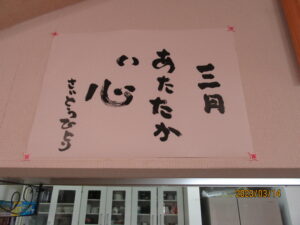 三月
あたたか
い心
さいとうひとり
2023/03/14